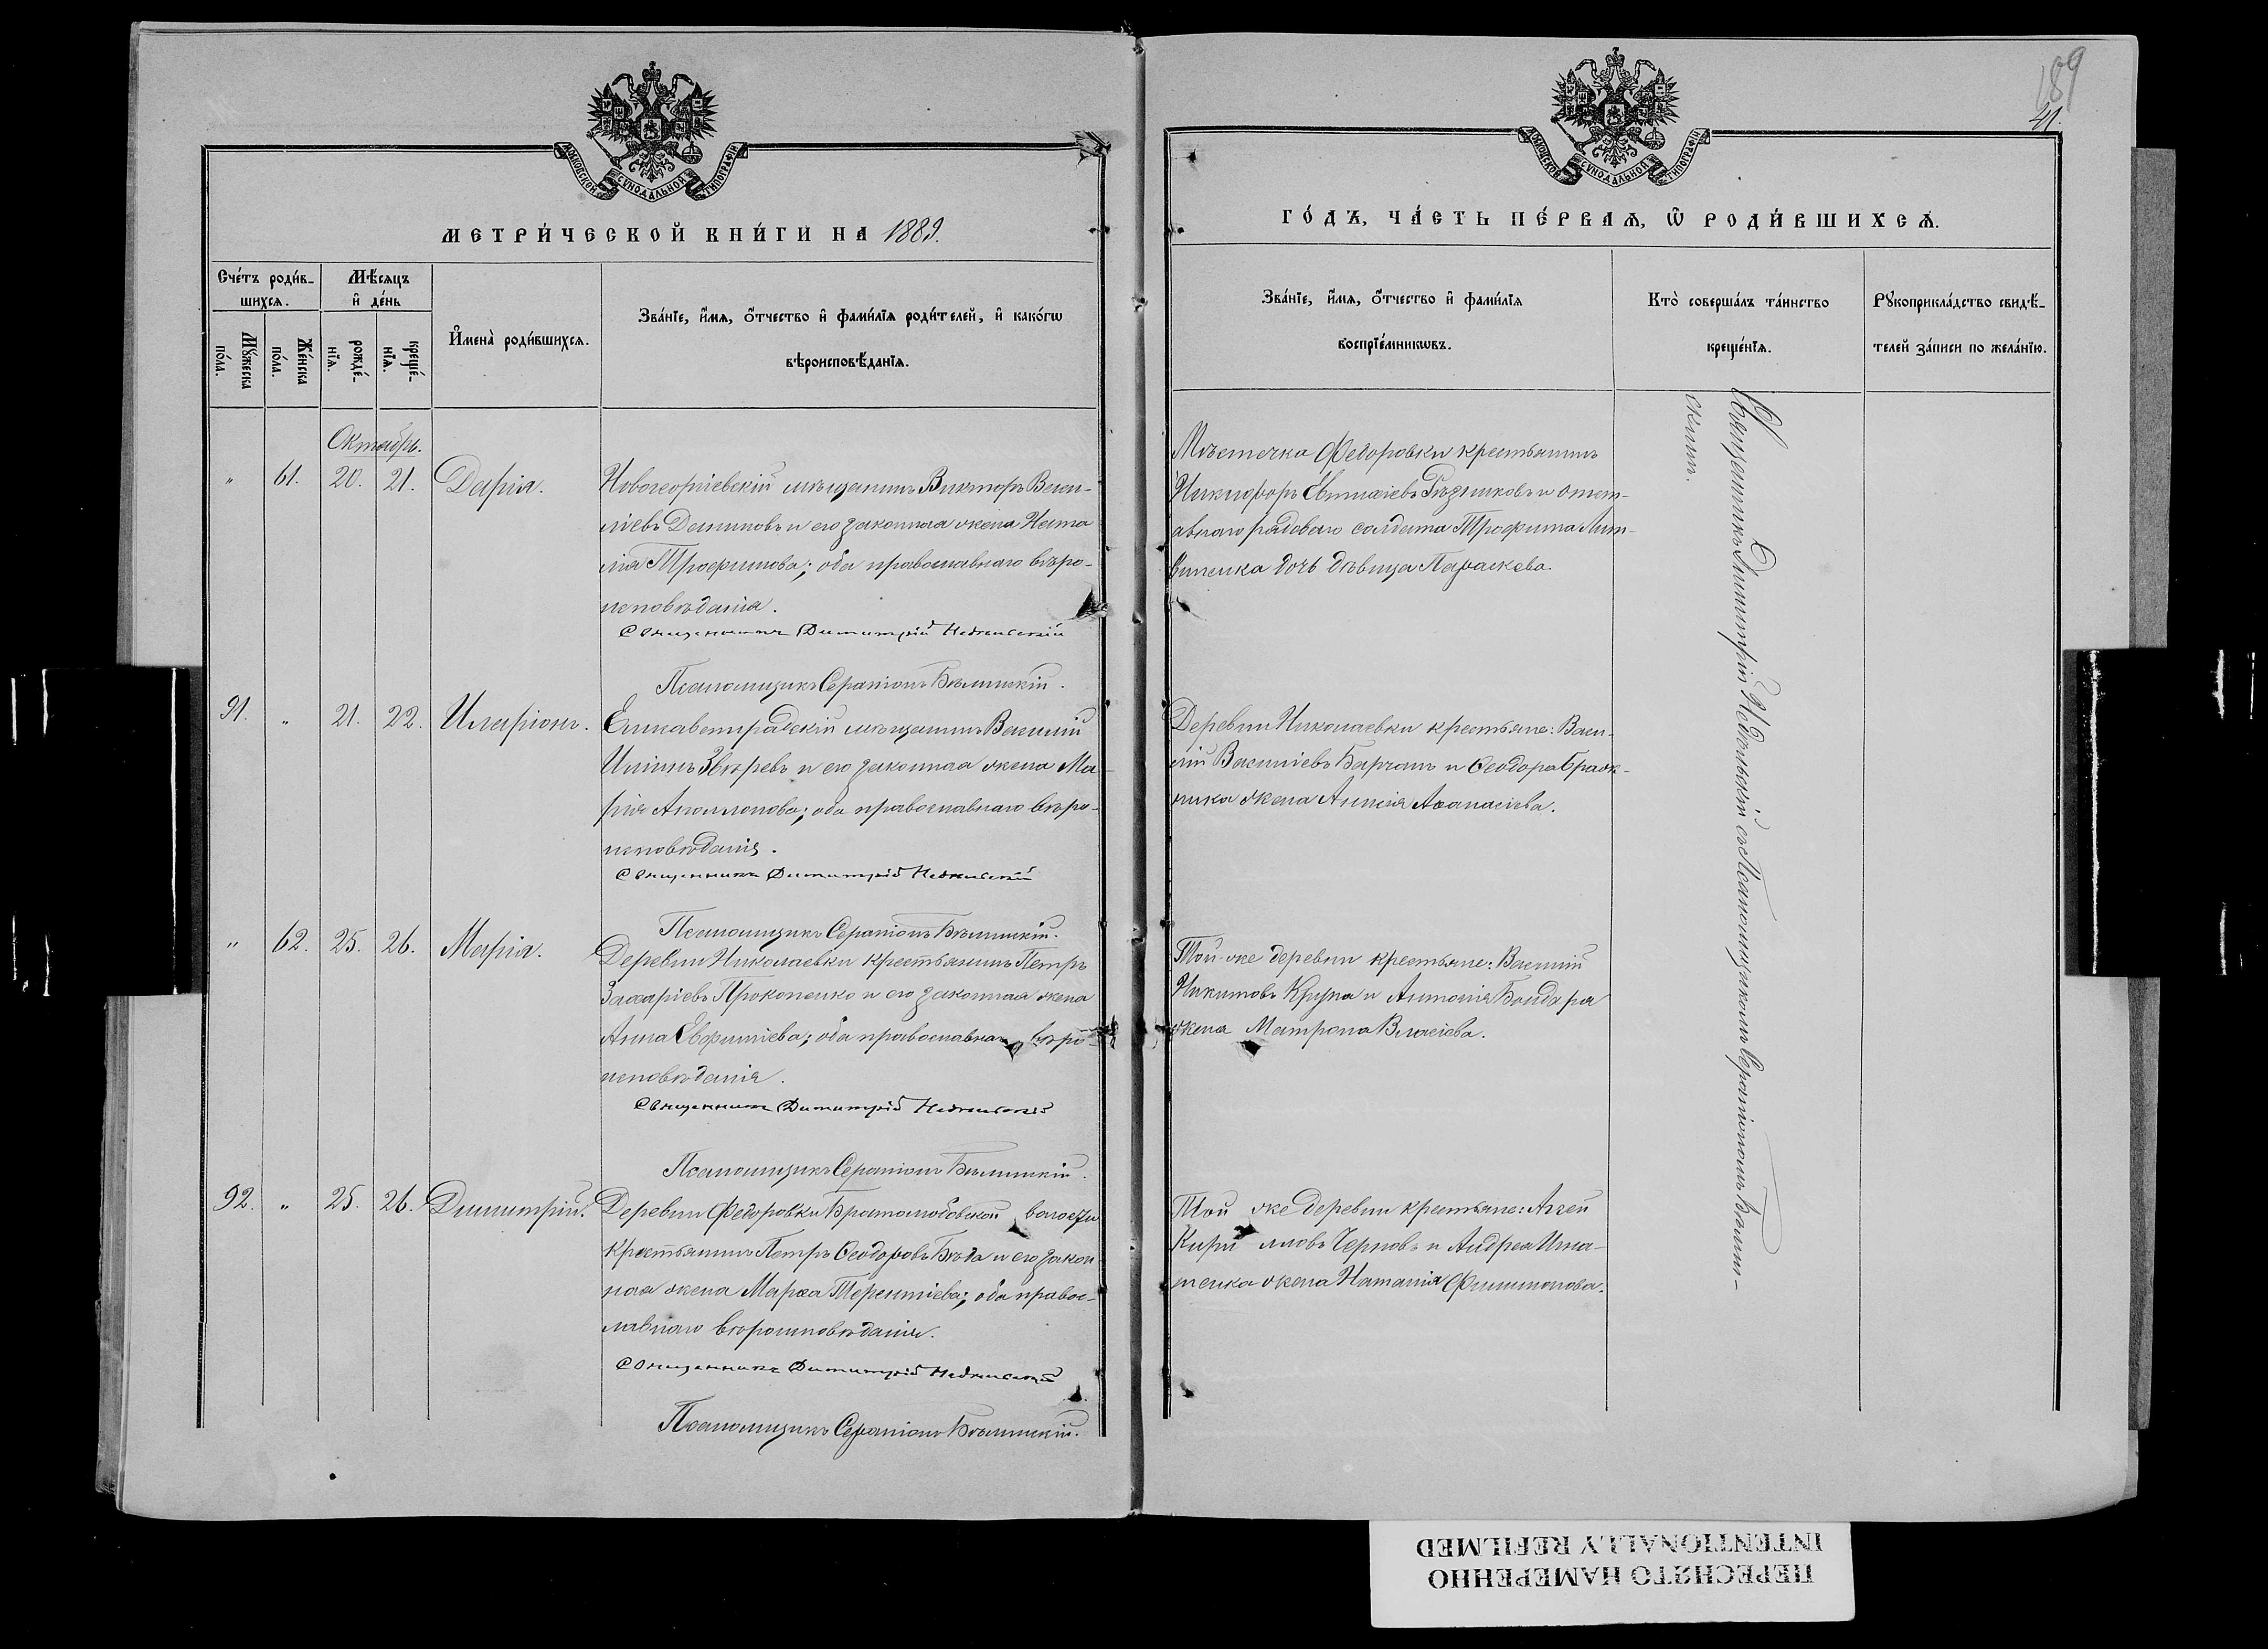 МОСКОВСКОЙ СѴНОДАЛЬНОЙ ТИПОГРАФІИ
МЕТРИ́ЧЕСКОЙ КНИ́ГИ НА 1889.
Сче́тъ роди́в-
шихся.
Мѣ́сяцъ
и҆ де́нь
Мꙋ́жеска
по́ла.
Же́нска
по́ла.
рожде́-
нїя.
креще́-
нїя.
И҆мена̀ роди́вшихся.
Зва́нїе, и҆́мя, ѻ҆́тчество и҆ фами́лїя роди́телей, и҆ како́гѡ
вѣроисповѣ́данїя.
Октябрь.
" 61. 20. 21. Дарія.
Новогеоргіевскій мѣщанинъ Викторъ Васи-
ліевъ Деминовъ и его законная жена Ната
лія Трофимова; оба православнаго вѣро-
исповѣданія.
Священникъ Димитрій Недѣльскій
Псаломщикъ Серапіонъ Бѣлинскій.
91. " 21. 22. Иларіонъ.
Елисаветградскій мѣщанинъ Василій
Иліинъ Звѣревъ и его законная жена Ма-
рія Аполлонова; оба православнаго вѣро-
исповѣданія.
Священникъ Димитрій Недѣльскій
Псаломщикъ Серапіонъ Бѣлинскій.
" 62. 25. 26. Марія.
Деревни Николаевки крестьянинъ Петръ
Захаріевъ Прокопенко и его законная жена
Анна Евфиміева; оба православнаго вѣро-
исповѣданія.
Священникъ Димитрій Недѣльскій
Псаломщикъ Серапіонъ Бѣлинскій.
92. " 25. 26. Димитрій.
Деревни Федоровки Братолюбовской волости
крестьянинъ Петръ Ѳеодоровъ Бѣда и его закон
ная жена Марѳа Терентіева; оба правос-
лавнаго вѣроисповѣданія.
Священникъ Димитрій Недѣльскій
Псаломщикъ Серапіонъ Бѣлинскій.
189
41.
МОСКОВСКОЙ СѴНОДАЛЬНОЙ ТИПОГРАФІИ
ГО́ДЪ, ЧА́СТЬ ПЕ́РВАѦ, Ѽ РОДИ́ВШИХСѦ.
Зва́нїе, и҆́мя, ѻ҆́тчество и҆ фами́лїя
воспрїе́мникѡвъ.
Кто̀ соверша́лъ та́инство
креще́нїя.
Рꙋкоприкла́дство свидѣ́-
телей за́писи по жела́нїю.
Мѣстечка Федоровки крестьянинъ
Никифоръ Рѣзниковъ и отст-
авнаго рядоваго солдата Трофима Лит-
виненка дочь дѣвица Параскева.
Деревни Николаевки крестьяне: Васи-
лій Василіевъ Барчанъ и Ѳеодора Браж-
ника жена Аѳанасіева.
Той-же деревни крестьяне: Василій
Никитовъ и Антонія Бондаря
жена Матрона Власіева.
Той же деревни крестьяне: Аггей
Кирилловъ Черновъ и Андрея Игна-
тенка жена Наталія Филимонова.
Священникъ Димитрій Недѣльскій съ Псаломщикомъ Серапіономъ Бѣлин-
скимъ.
ПЕРЕСНЯТО НАМЕРЕННО
INTENTIONALLY REFILMED